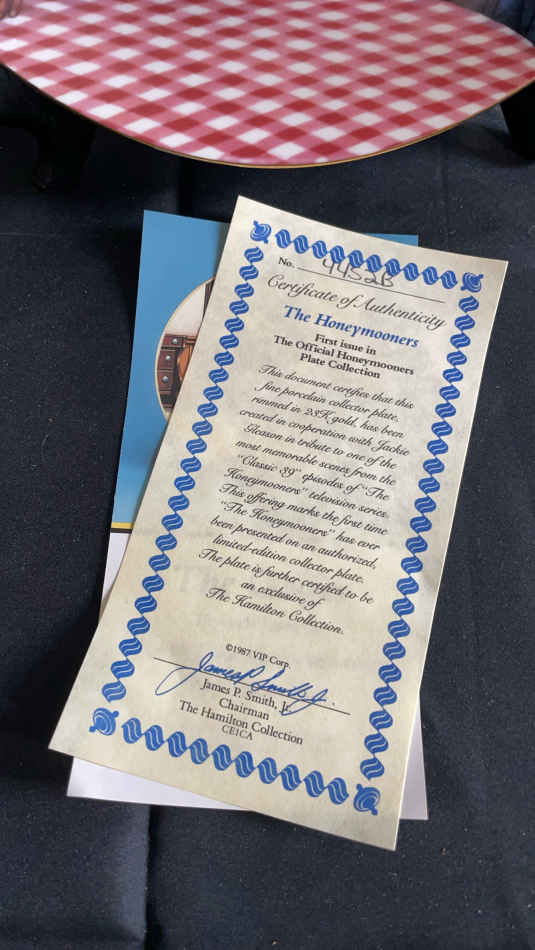 No. 4452B
Certificate of Authenticity
The Honeymooners
First issue in
The Official Honeymooners
Plate Collection
This document certifies that this
fine porcelain collector plate,
rimmed in 23K gold, has been
created in cooperation with Jackie
Gleason in tribute to one of the
most memorable scenes from the
"Classic 39" episodes of "The
Honeymooners" television series.
This offering marks the first time
"The Honeymooners" has ever
been presented on an authorized,
limited-edition collector plate.
The plate is further certified to be
an exclusive of
The Hamilton Collection.
©1987 VIP Corp.
James P. Smith, Jr.
James P. Smith, Jr.
Chairman
The Hamilton Collection
CE1CA